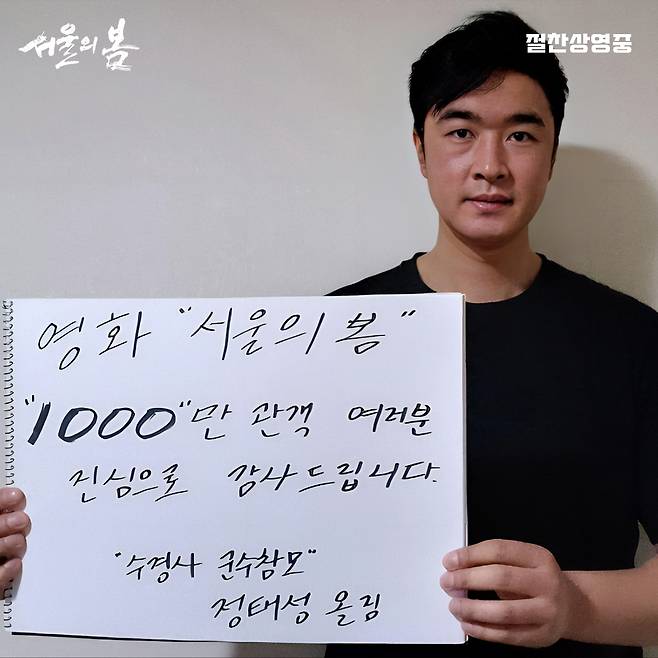 서울의봄
절찬상영중
영화 "서울의 봄"
"1000"만 관객 여러분
진심으로 감사드립니다.
"수경사 군수참모"
정태성 올림